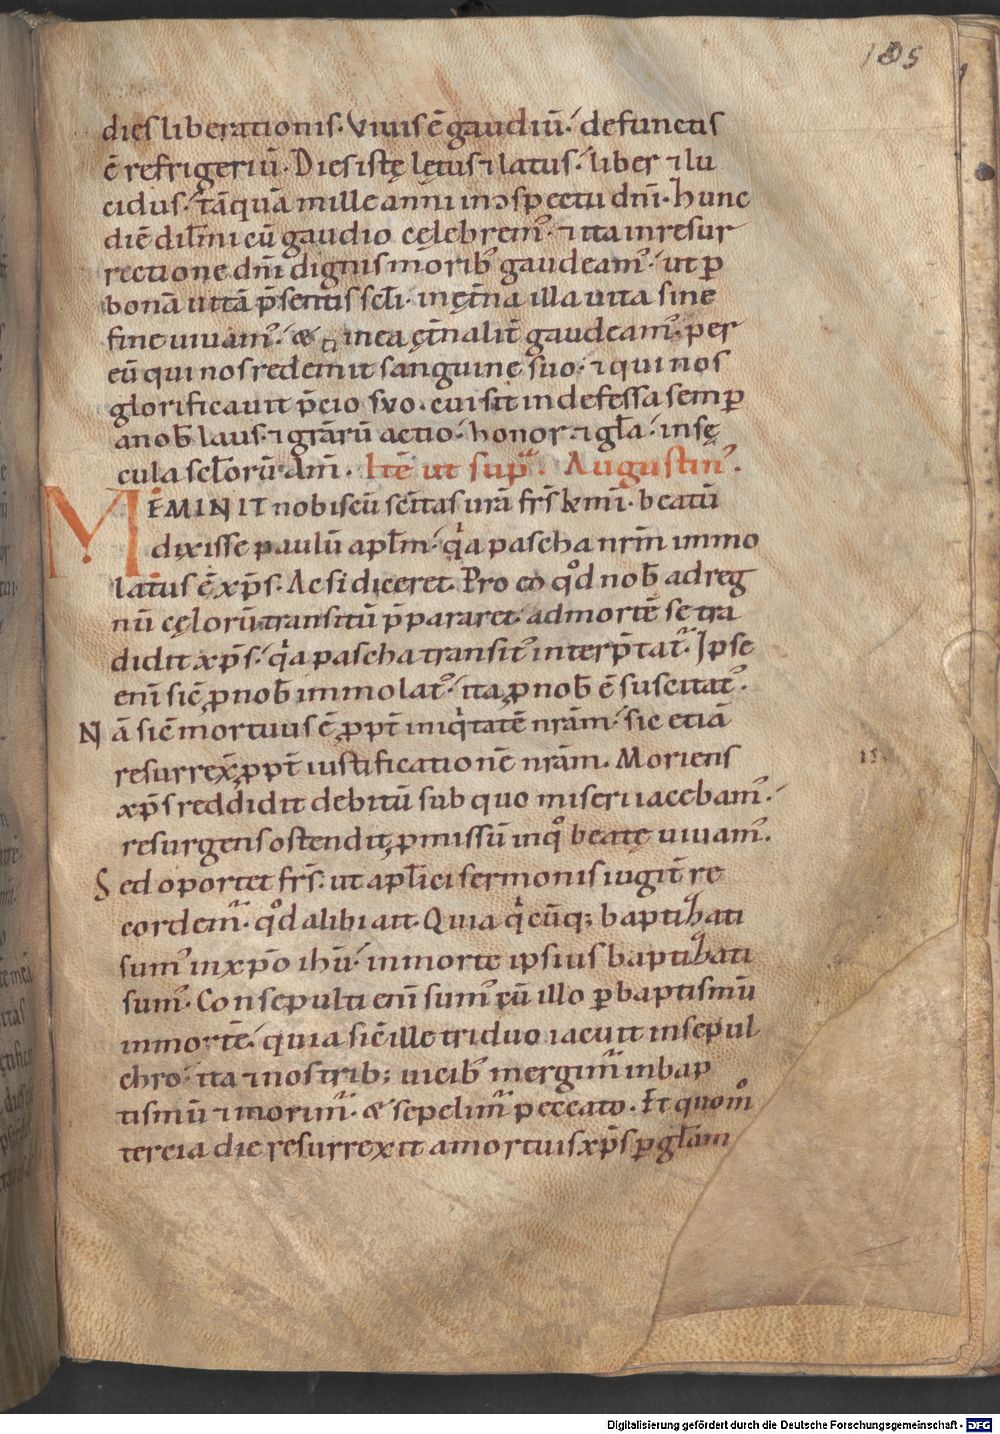 185
dies liberationis. Viuis ē gaudiū. defunctis
ē refrigeriū. Dies istę lętus ⁊ latus. liber ⁊ lu
cidus. tāquā mille anni in ↄspectu dnī. Hunc
diē dil̄mi cū gaudio cęlebrem᾽. ⁊ ita in resur
rectione dnī dignis morib᾽ gaudeam᾽. ut ꝑ
bonā uitā p̄sentis scl̄i. in ęt̄na illa uita sine
fine uiuam᾽. & in ea ęt̄nalit̄ gaudeam᾽. per
eū qui nos redemit sanguine suo. ⁊ qui nos
glorificauit p̄cio suo. cui sit indefessa semꝑ
a nob̄ laus. ⁊ grārū actio. honor ⁊ gl̄a. in sę
cula scl̄orū Am̄. Itē ut supͣ. Augustin᾽.
MEMINIT nobiscū sc̄itas urā frs̄ km̄i. beatū
dixisse paulū apl̄m. qͥa pascha nrm̄ immo
latus ē xp̄s. Ac si diceret. Pro eo qͦd nob̄ ad reg
nū cęlorū transitū p̄pararet. ad mortē se tra
didit xp̄s. qͥa pascha transit᾽ interp̄tat᾽. Ipse
enī sic̄ ꝓ nob̄ immolat᾽. ita ꝓ nob̄ ē suscitat᾽.
Nā sic̄ mortuus ē ꝓpt̄ iniqͥtatē nrām. sic etiā
resurrex̄ ꝓpt̄ iustificationē nrām. Moriens
xp̄s reddidit debitū sub quo miseri iacebam᾽.
resurgens ostendit ꝓmissū in qͦ beatę uiuam᾽.
Sed oportet frs̄. ut apl̄ici sermonis iugit̄ re
cordem᾽. qͦd alibi ait. Quia qͥcūq; baptizati
sum᾽ in xp̄o ih̄u. in morte ipsius baptizati
sum᾽. Consepulti enī sum᾽ cū illo ꝑ baptismū
in mortē. quia sic̄ ille triduo iacuit in sepul
chro. ita ⁊ nos trib; uicib᾽ mergim᾽ in bap
tismū ⁊ morim᾽. & sepelim᾽ peccato. Et quom̊
tercia die resurrexit a mortuis xp̄s ꝑ gl̄am
Digitalisierung gefördert durch die Deutsche Forschungsgemeinschaft - DFG